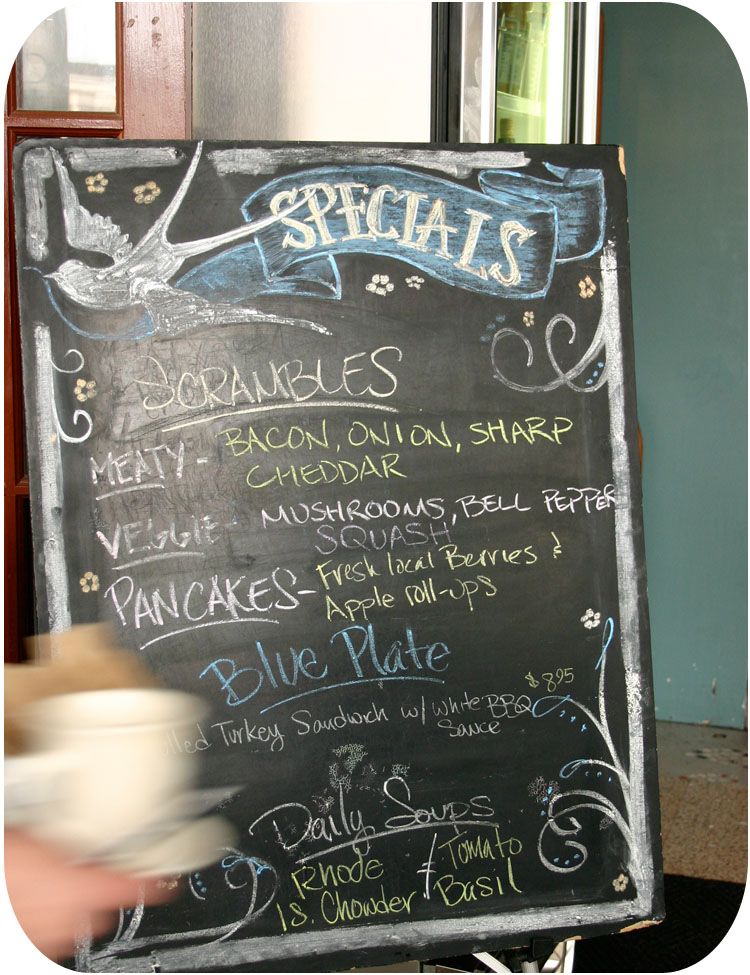 SPECIALS
SCRAMBLES
MEATY - BACON, ONION, SHARP
CHEDDAR
VEGGIE - MUSHROOMS, BELL PEPPER
SQUASH
PANCAKES - Fresh local Berries &
Apple roll-ups
Blue Plate
$8.95
Turkey Sandwich w/ white BBQ
Sauce
Daily Soups
Rhode & Tomato
Is. Chowder Basil